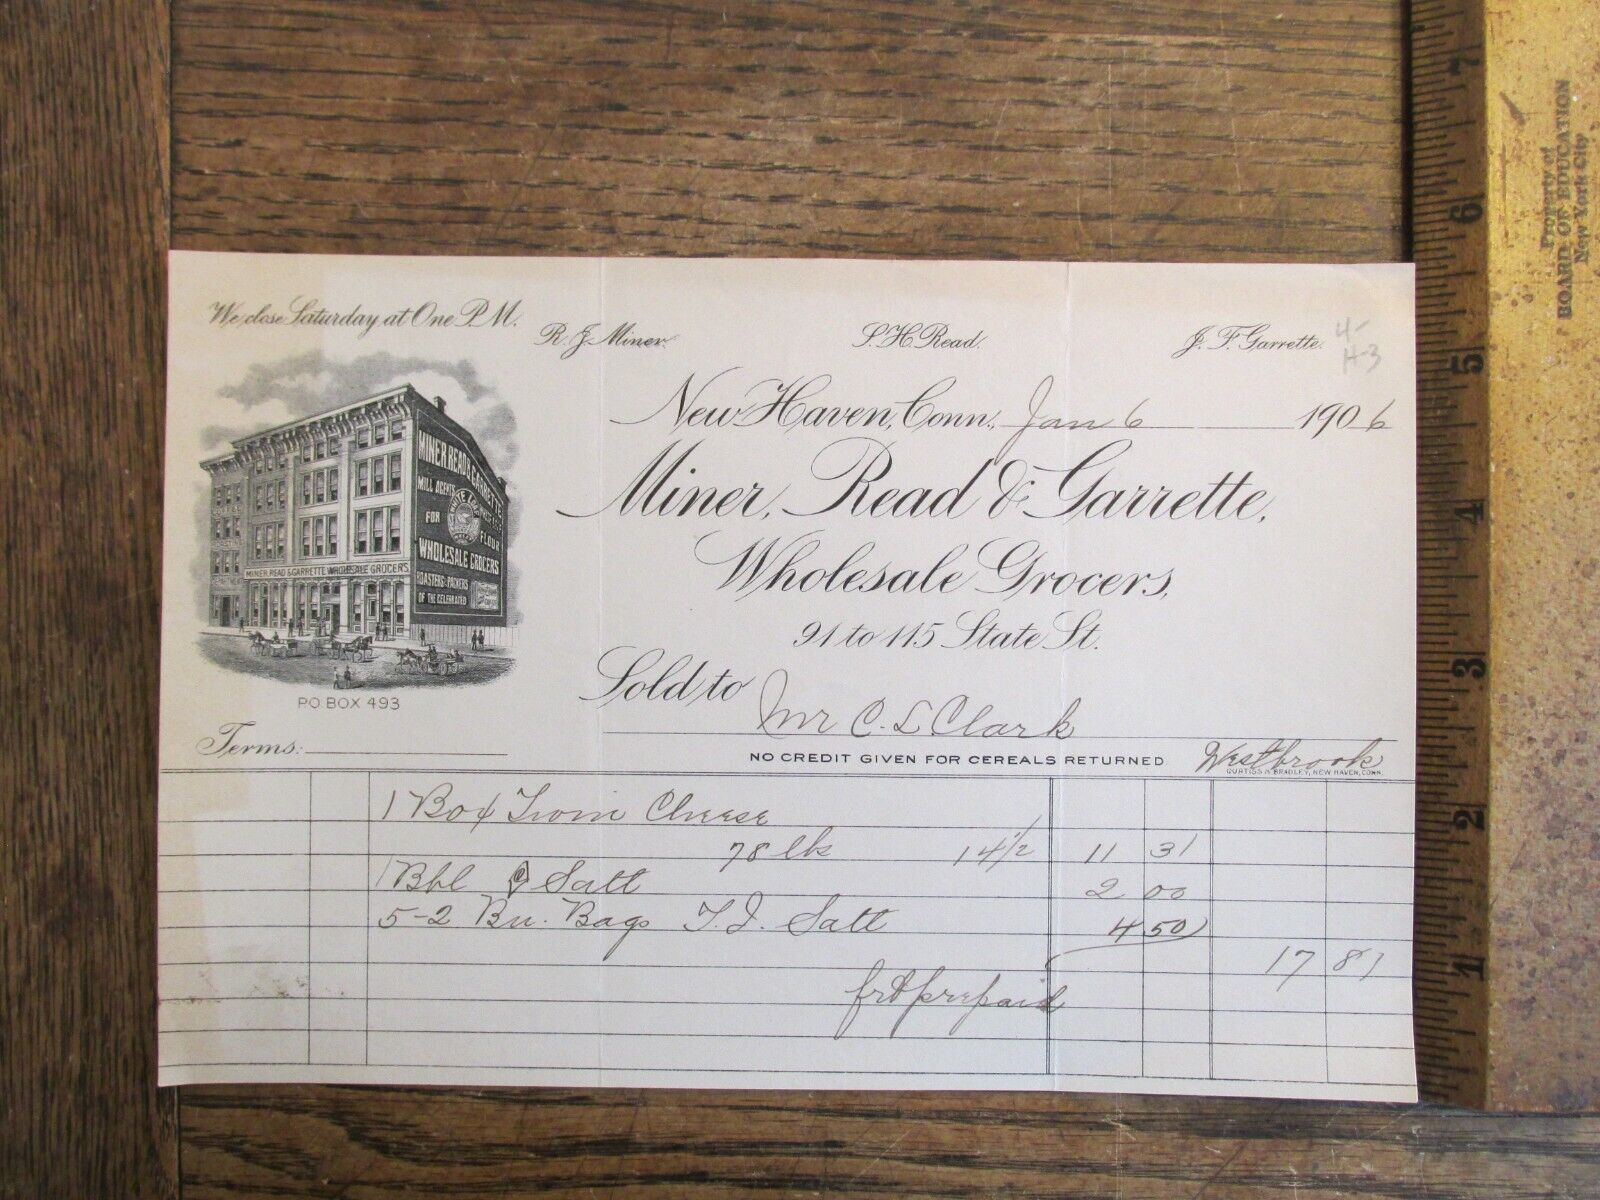 We close Saturday at One P.M.
R. J. Miner. S. H. Read. J. F. Garrette.
4-
H-3
New Haven, Conn., Jan 6 1906
Miner, Read & Garrette,
Wholesale Grocers,
91 to 115 State St.
MINER, READ & GARRETTE
MILL AGENTS
FOR
FLOUR
WHOLESALE GROCERS
ROASTERS & PACKERS
OF THE CELEBRATED
MINER, READ & GARRETTE, WHOLESALE GROCERS.
P.O. BOX 493
Sold to Mr C. L Clark
Terms:
NO CREDIT GIVEN FOR CEREALS RETURNED Westbrook
CURTISS & BRADLEY, NEW HAVEN, CONN.
1 Box Twin Cheese
78 lbs 14 1/2 11 31
1 Bbl Salt 2 00
5-2 Bu. Bags T.I. Salt 4 50
17 81
frt prepaid
Property of
BOARD OF EDUCATION
New York City
7
6
5
4
3
2
1